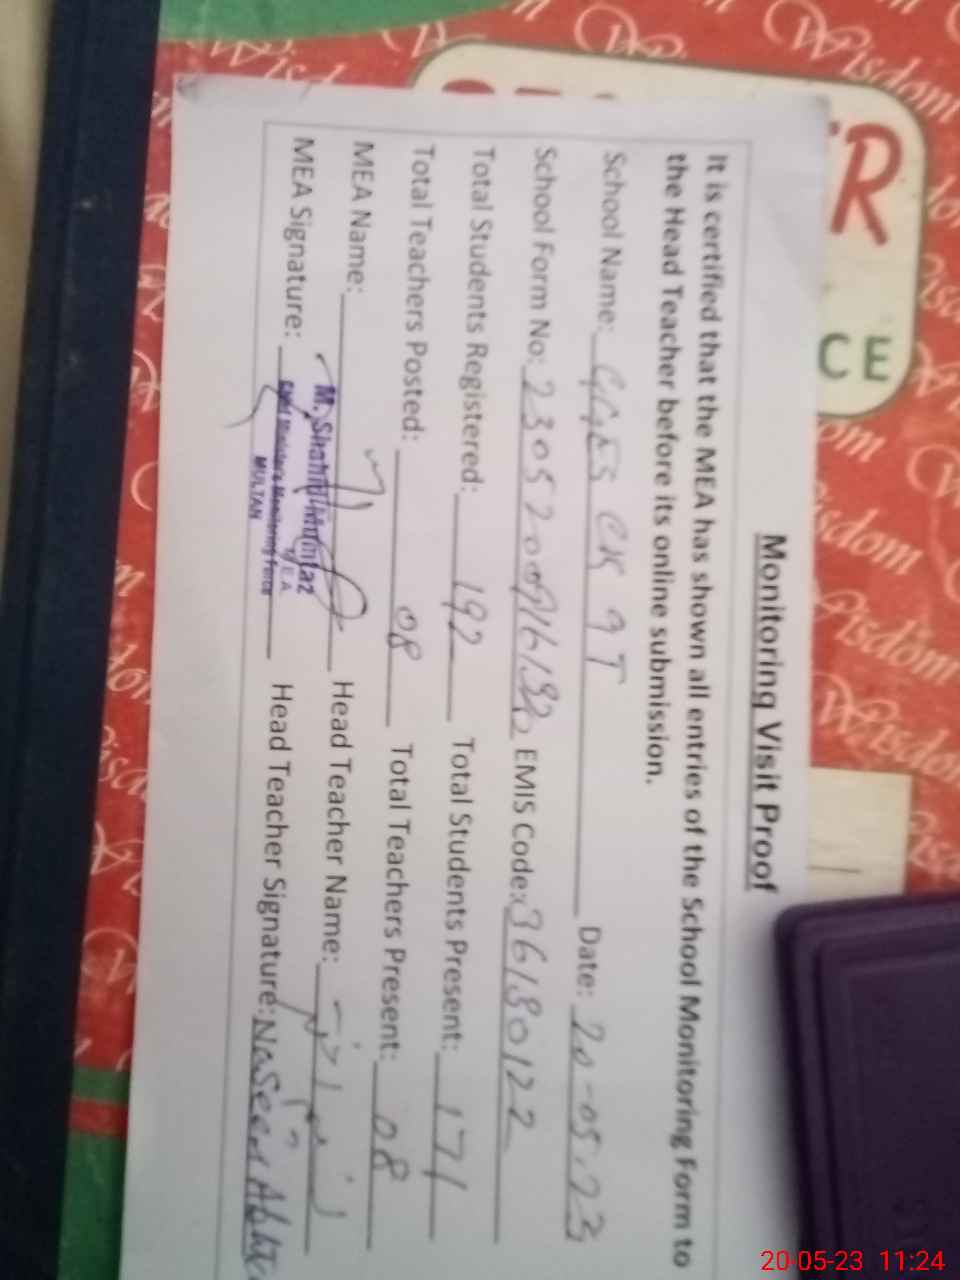 Monitoring Visit Proof
It is certified that the MEA has shown all entries of the School Monitoring Form to
the Head Teacher before its online submission.
School Name: GGES CH 9T Date: 20-05-23
School Form No: EMIS Code: 36180122
Total Students Registered: 192 Total Students Present: 171
Total Teachers Posted: 08 Total Teachers Present: 08
MEA Name: Head Teacher Name:
M. Shahid Mumtaz
M.E.A.
Chief Minister's Monitoring Force
MULTAN
MEA Signature: Head Teacher Signature: Naseer
R
CE
Wisdom
Wisdom
Wisdom
20-05-23 11:24